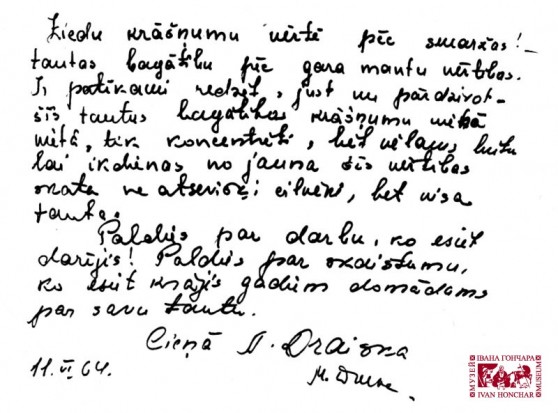 Ziedu krāšņumu vērtē pēc smaržas! –
tautas bagātību pēc gara mantu vērtības.
Ir patīkami redzēt, just un pārdzīvot –
šīs tautas bagātības krāšņumu
vietā, tik koncentrēti, bet vēlams būtu
lai ikdienas no jauna šīs vērtības
skata ne atsevišķi cilvēki, bet visa
tauta.
Paldies par darbu, ko esiet
darījis! Paldies par skaistumu,
ko esiet krājis gadiem domādams
par savu tautu.
Cieņā A. Draiska
11.VI.64. M.
МУЗЕЙ ІВАНА ГОНЧАРА
IVAN HONCHAR MUSEUM